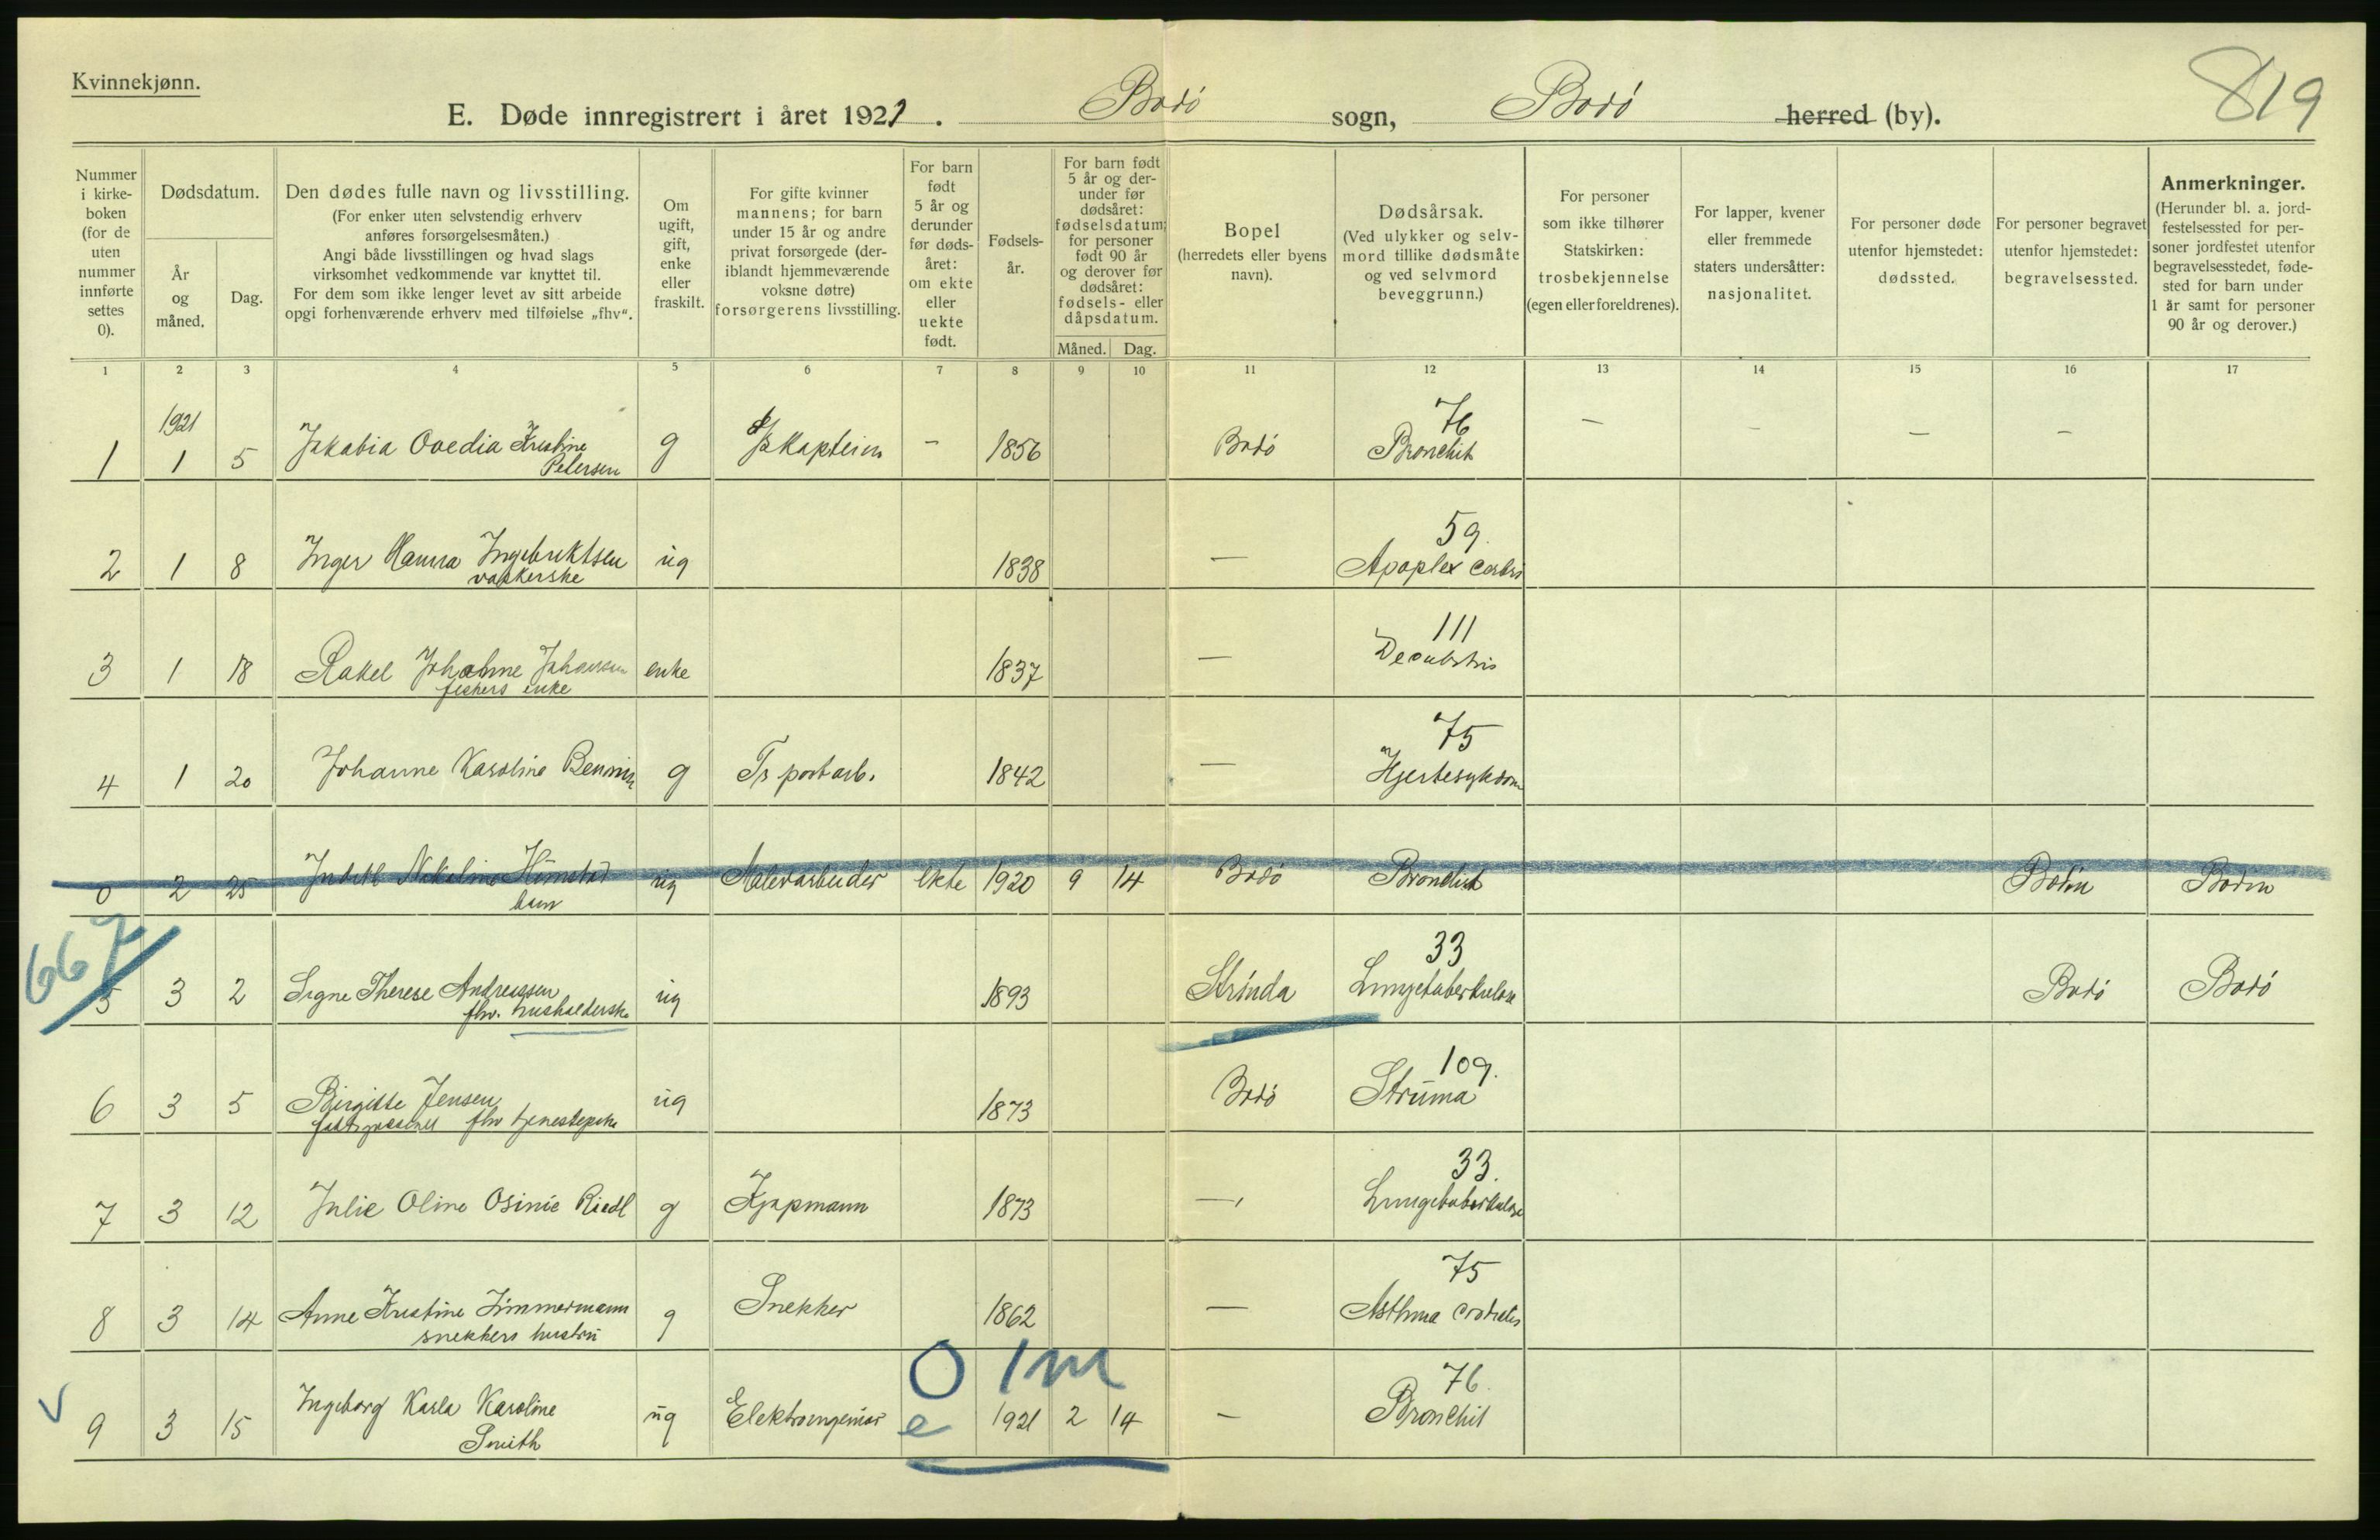 Kvinnekjønn.
819
E. Døde innregistrert i året 1921. Bodö sogn, Bodö herred (by).
Nummer i kirkeboken (for de uten nummer innførte settes 0).
Dødsdatum.
År og måned.
Dag.
Den dødes fulle navn og livsstilling.
(For enker uten selvstendig erhverv anføres forsørgelsesmåten.)
Angi både livsstillingen og hvad slags virksomhet vedkommende var knyttet til.
For dem som ikke lenger levet av sitt arbeide opgi forhenværende erhverv med tilføielse „fhv".
Om ugift, gift, enke eller fraskilt.
For gifte kvinner mannens; for barn under 15 år og andre privat forsørgede (deriblandt hjemmeværende voksne døtre) forsørgerens livsstilling.
For barn født 5 år og derunder før dødsåret: om ekte eller uekte født.
Fødselsår.
For barn født 5 år og derunder før dødsåret: fødselsdatum; for personer født 90 år og derover før dødsåret: fødsels- eller dåpsdatum.
Måned. Dag.
Bopel
(herredets eller byens navn).
Dødsårsak.
(Ved ulykker og selvmord tillike dødsmåte og ved selvmord beveggrunn.)
For personer som ikke tilhører Statskirken: trosbekjennelse (egen eller foreldrenes).
For lapper, kvener eller fremmede staters undersåtter: nasjonalitet.
For personer døde utenfor hjemstedet: dødssted.
For personer begravet utenfor hjemstedet: begravelsessted.
Anmerkninger.
(Herunder bl. a. jordfestelsessted for personer jordfestet utenfor begravelsesstedet, fødested for barn under 1 år samt for personer 90 år og derover.)
1 2 3 4 5 6 7 8 9 10 11 12 13 14 15 16 17
1921
76
1 1 5 Jakobia Ovedia Kristine Petersen g Skaptein - 1856 Bodö Bronchit — — — —
59.
2 1 8 Inger Hanna Ingebriktsen vaskerske ug 1838 — Apoplex cerebri
111
3 1 18 Rakel Johanne Johansen fiskers enke enke 1837 — Decubitus
75
4 1 20 Johanne Karoline g Tr portarb. 1842 — Hjertesykdom
0 2 25 barn ug Malerarbeider ekte 1920 9 14 Bodö Bronchit Bodin Bodin
667
33
5 3 2 Signe Therese Andreassen fhv. husholderske ug 1893 Strinda Lungetuberkulose Bodö Bodö
109.
6 3 5 Birgitte Jensen fhv tjenestepike ug 1873 Bodö Struma
33.
7 3 12 Julie Oline Osinie Riedl g Kjøpmann 1873 — Lungetuberkulose
75
8 3 14 Anne Kristine Zimmermann snekkers hustru g Snekker 1862 — Asthma
0 1 m
76.
9 3 15 Ingeborg Karla Karoline Smith ug Elektroingeniør e 1921 2 14 — Bronchit